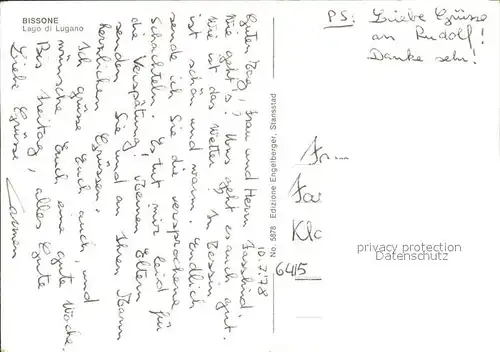 BISSONE
Lago di Lugano
10.7.78
Guten Tag, Frau und Herr Fassbind.
Wie geht's? Uns geht es auch gut.
Wie ist das Wetter? In Tessin
ist schön und warm. Endlich
sende ich Sie die versprochene
Schachteln. Es tut mir leid für
die Verspätung! Meinen Eltern
senden Sie und an Ihren Mann
herzlichen Grüssen.
Ich grüsse Euch auch, und
wünsche Euch eine gute Woche.
Bis Freitag, alles Gute
Liebe Grüsse
Carmen
No. 5878 Edizione Engelberger, Stansstad
PS: Liebe Grüsse
an Rudolf!
Danke sehr!
Fr.
Fas
Klo
6415
profihistory.com
PROFESSIONAL PHILATELIC SERVICES